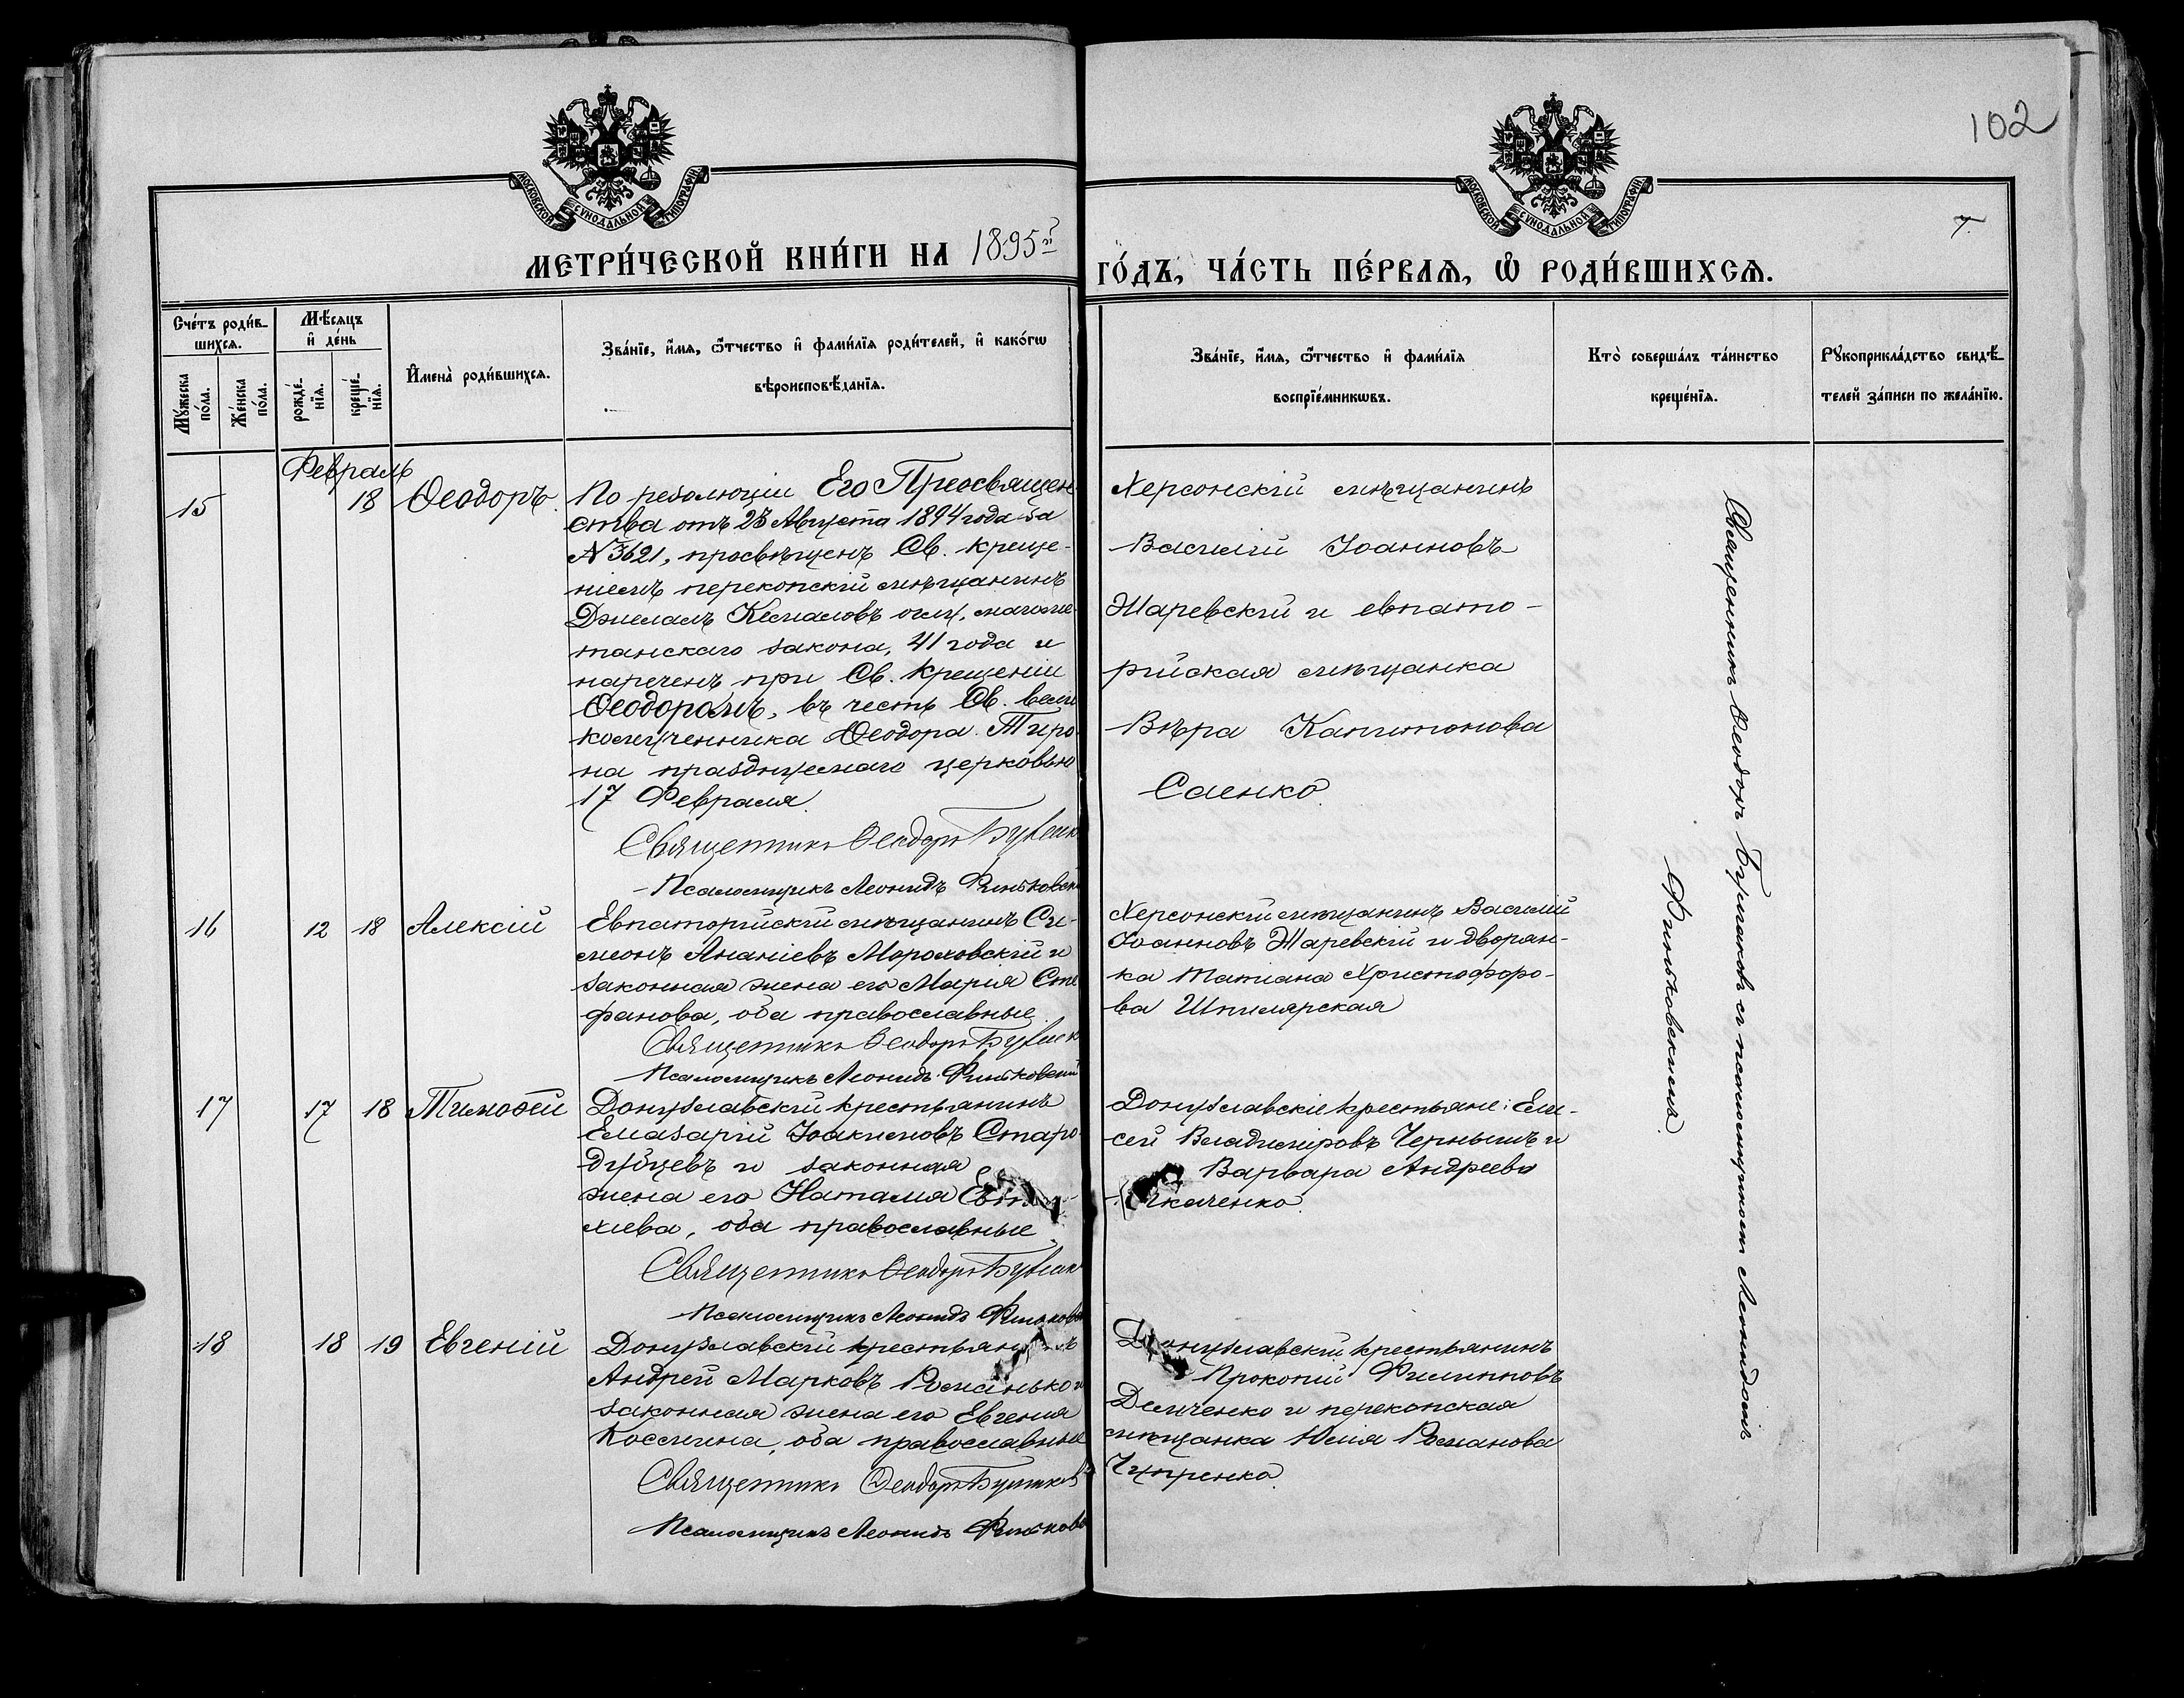 102
7.
МОСКОВСКОЙ СѴНОДАЛЬНОЙ ТИПОГРАФІИ
МОСКОВСКОЙ СѴНОДАЛЬНОЙ ТИПОГРАФІИ
МЕТРИ́ЧЕСКОЙ КНИ́ГИ НА 1895й
ГО́ДЪ, ЧА́СТЬ ПЕ́РВАѦ, Ѡ҆ РОДИ́ВШИХСѦ.
Сче́тъ роди́в-
шихсѧ.
Мꙋ́жеска по́ла.
Же́нска по́ла.
Мѣ́сѧцъ
и҆ де́нь
рожде́-
нїѧ.
креще́-
нїѧ.
И҆мена̀ роди́вшихсѧ.
Зва́нїе, и҆́мѧ, ѻ҆́тчество и҆ фами́лїѧ роди́телей, и҆ како́гѡ
вѣроисповѣ́данїѧ.
Зва́нїе, и҆́мѧ, ѻ҆́тчество и҆ фами́лїѧ
воспрїе́мникѡвъ.
Кто̀ соверша́лъ та́инство
креще́нїѧ.
Рꙋкоприкла́дство свидѣ́-
телей за́писи по жела́нїю.
Февраль
15
18
Ѳеодоръ.
По резолюціи Его Преосвящен
ства отъ 23 Августа 1894 года за
№ 3621, просвѣщенъ Св. креще-
ніемъ перекопскій мѣщанинъ
Джелалъ Кемаловъ оглу, магоме-
танскаго закона, 41 года и
нареченъ при Св. крещеніи
Ѳеодоромъ, въ честь Св. вели
комученника Ѳеодора Тиро
на празднуемаго церковью
17 Февраля.
Священникъ Ѳеодоръ
Псаломщикъ Леонидъ Финьковскі
Херсонскій мѣщанинъ
Василій Іоанновъ
Жаревскій и евпато-
рійская мѣщанка
Вѣра Капитонова
Саенко.
Священникъ Ѳеодоръ Булгаковъ съ псаломщикомъ Леонидомъ
Финьковскимъ.
16
12
18
Алексій
Евпаторійскій мѣщанинъ Си-
меонъ Ананіевъ Мороховскій и
законная жена его Марія Сте
фанова, оба православные.
Священникъ Ѳеодоръ
Псаломщикъ Леонидъ Финьковскій
Херсонскій мѣщанинъ Василій
Іоанновъ Жаревскій и дворян-
ка Татіана Христофоро-
ва Шпилярская
17
17
18
Тимоѳей
Донузлавскій крестьянинъ
Елазарій Іоакимовъ Старо-
дубцевъ и законная
жена его Наталія
міева, оба православные.
Священникъ Ѳеодоръ
Псаломщикъ Леонидъ Финьковс
Донузлавскіе крестьяне: Ели-
сей Владиміровъ Чернышъ и
Варвара Андреева
Ткаченко.
18
18
19
Евгеній
Донузлавскій крестьянинъ
Андрей Марковъ Романько и
законная жена его Евгенія
Космина, оба православные
Священникъ Ѳеодоръ Булгаковъ
Псаломщикъ Леонидъ Финьковс
Донузлавскій крестьянинъ
Прокопій Филипповъ
Демченко и перекопская
мѣщанка Юлія Романова
Чупренко.